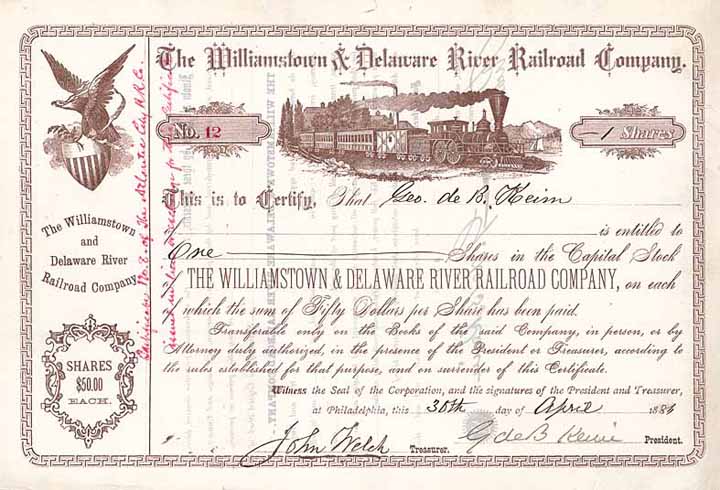 The Williamstown & Delaware River Railroad Company.
No. 12
-1 Shares
This is to Certify, That Geo. de B. Keim
is entitled to
One Shares in the Capital Stock
of THE WILLIAMSTOWN & DELAWARE RIVER RAILROAD COMPANY, on each
of which the sum of Fifty Dollars per Share has been paid.
Transferable only on the Books of the said Company, in person, or by
Attorney duly authorized, in the presence of the President or Treasurer, according to
the rules established for that purpose, and on surrender of this Certificate.
Witness the Seal of the Corporation, and the signatures of the President and Treasurer,
at Philadelphia, this 30th day of April 1884
John Welch Treasurer. G de B Keim President.
The Williamstown
and
Delaware River
Railroad Company
SHARES
$50.00
EACH.
Certificate No. 2 of The Atlantic City R.R.Co.
issued in lieu of this Certificate